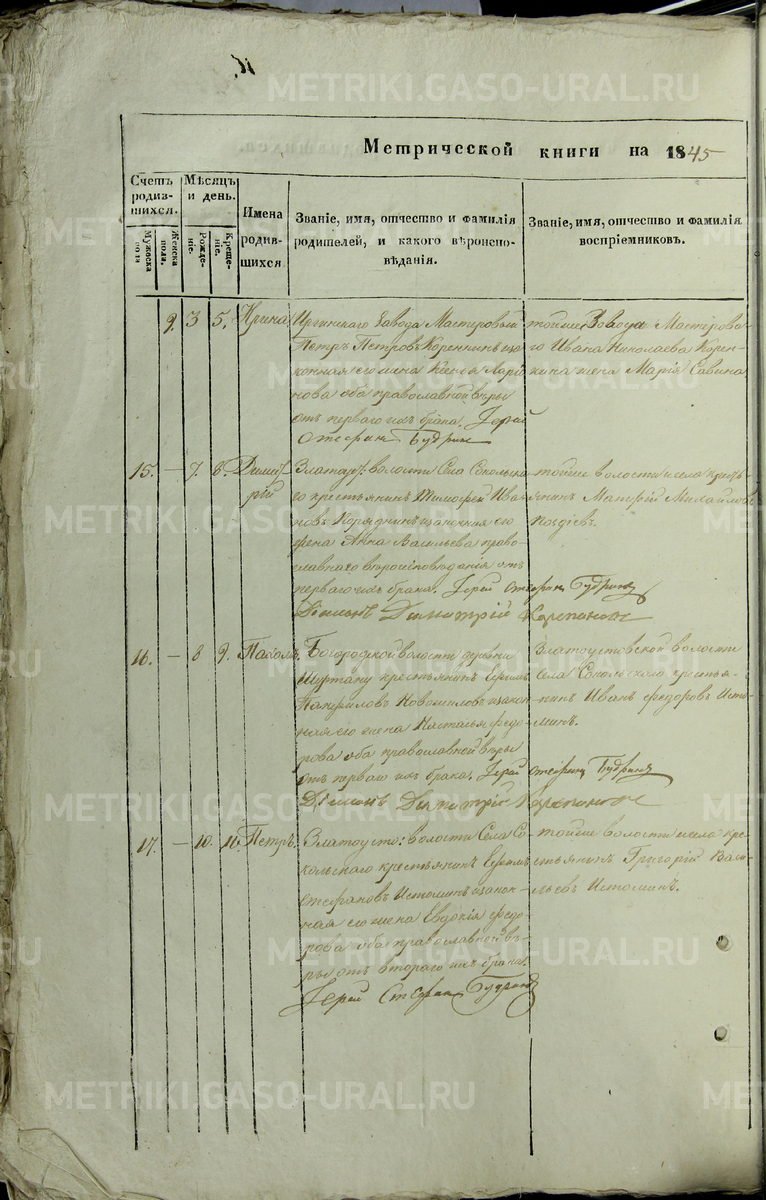 METRIKI.GASO-URAL.RU
Метрической книги на 1845
Счетъ родив-шихся.
Мужеска пола.
Женска пола.
Мѣсяцъ и день.
Рожде-ніе.
Креще-ніе.
Имена родив-шихся
Званіе, имя, отчество и фамилія родителей, и какого вѣроиспо-вѣданія.
Званіе, имя, отчество и фамилія воспріемниковъ.
9. 3 5. Ирина
Иргинскаго Завода Мастеровый
Петръ Петровъ Коренкинъ и за-
конная его жена Ларіо-
нова оба православной вѣры
отъ перваго ихъ брака. Іерей
Стефанъ Будринъ
тойже Завода Мастерова-
го Ивана Николаева Корен-
кина жена Марія Савина
15. — 7. 8. Димит-
рій
Златоуст: волости Села Сокольска-
го крестьянинъ Тимофей Ива-
новъ и законная его
жена Анна Васильева право-
славнаго вѣроисповѣданія отъ
перваго ихъ брака. Іерей Стефанъ Будринъ
Діаконъ Димитрій
тойже волости и села кресть-
янинъ Михайловъ
16. — 8 9. Пахомъ.
Богородской волости деревни
крестьянинъ Ефимъ
Панфиловъ Новоселовъ и закон-
ная его жена Наталья Федо-
рова оба православной вѣры
отъ перваго ихъ брака. Іерей Стефанъ Будринъ
Діаконъ Димитрій
Златоустовской волости
Села Сокольскаго крестья-
нинъ Иванъ Федоровъ Исто-
минъ.
17. — 10. 11. Петръ.
Златоусто: волости Села Со-
кольскаго крестьянинъ Ефимъ
Стефановъ Истоминъ и закон-
ная его жена Евдокія Федо-
рова оба православной вѣ-
ры отъ втораго ихъ брака.
Іерей Стефанъ Будринъ
тойже волости и села кре-
стьянинъ Григорій Васи-
льевъ Истоминъ.